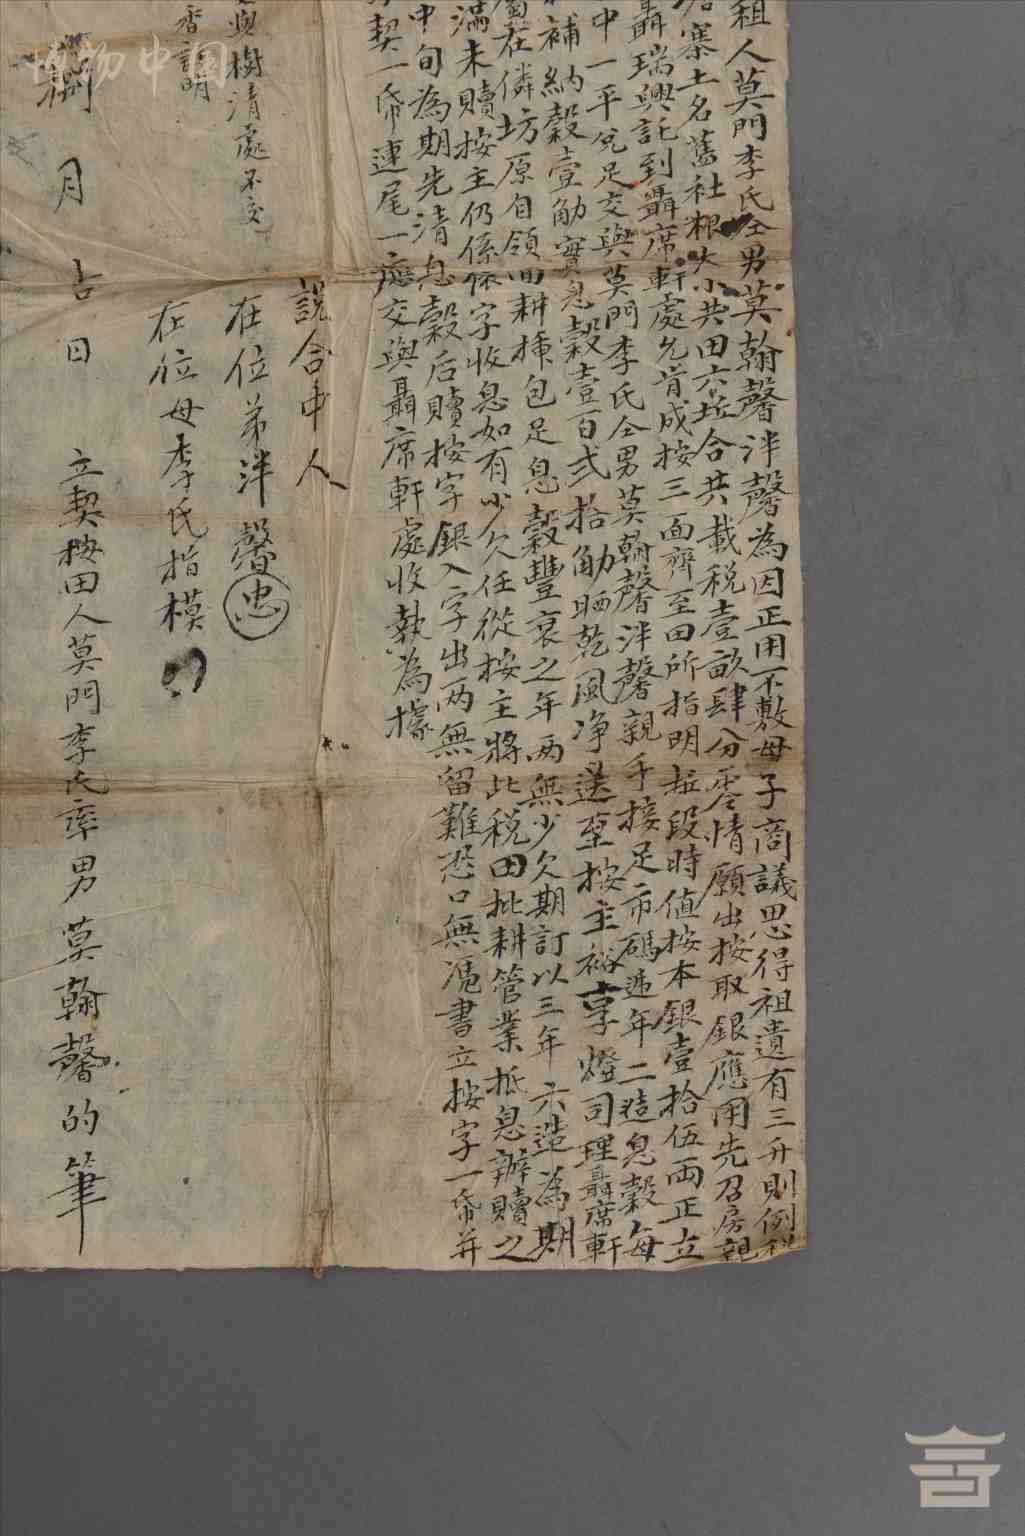 租人莫門李氏仝男莫翰馨泮馨為因正用不敷母子商議思得祖遺有三升則例稅
寨土名舊社粮大小共田六坵合共載稅壹畝肆分零情願出按取銀應用先召房親
聶瑞興託到聶席軒處允肯成按三面齊至田所指明坵段時值按本銀壹拾伍両正立
中一平兌足交與莫門李氏仝男莫翰馨泮馨親手接足市碼遞年二造息穀每
補納穀壹觔實息穀壹百弍拾觔晒乾風净送至按主裕享燈司理聶席軒
在隣坊原自領回耕揷包足息穀豐衰之年両無少欠期訂以三年六造為期
滿未贖按主仍係依字收息如有少欠任從按主將此稅田批耕管業抵息辦贖之
中旬為期先清息穀后贖按字銀入字出両無留難恐口無馮書立按字一帋并
契一帋連尾一𢇁交與聶席軒處收執為據
說合中人
與樹清處不交
在位弟泮馨忠
香註明
在位母李氏指模
月吉日 立契按田人莫門李氏率男莫翰馨的筆
博物中国